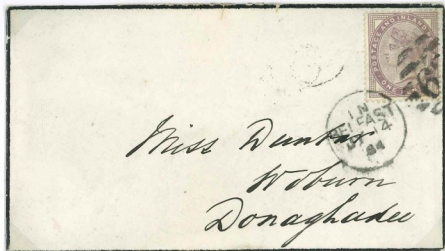 POSTAGE AND INLAND
62
IN
BELFAST
4
84
Miss Dunbar
Woburn
Donaghadee